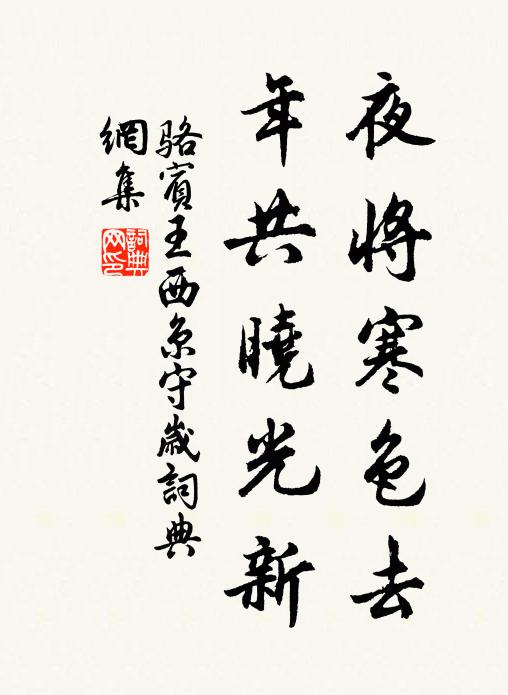 夜將寒色去
年共曉光新
駱賓王西京守歲詞典
網集
詞典网印